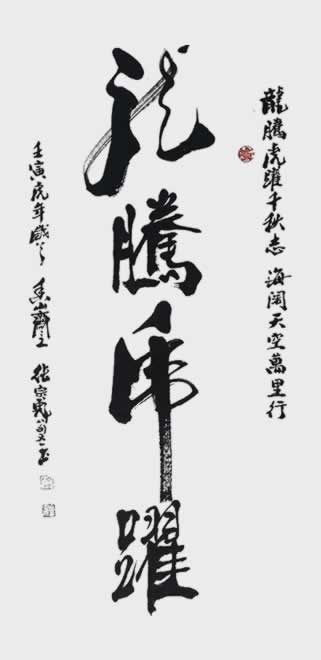 龍騰虎躍千秋志 海闊天空萬里行
龍騰虎躍
壬寅虎年 山齋主 張宗